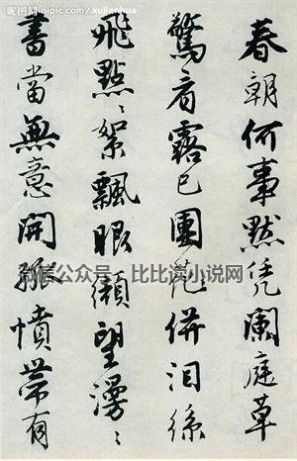 昵图网 nipic.com/xujianhua
春朝何事默凭闌庭草
驚看露已團花併泪絲
飛點〻絮飄眼纈望漫〻
書當無意開孤憤帶有
微信公众号：比比读小说网